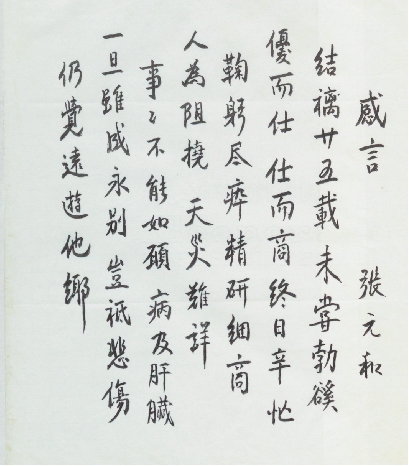 感言 張元和
結褵廿五載 未嘗勃谿
優而仕 仕而商 終日辛忙
鞠躬尽瘁 精研細商
人為阻撓 天災難詳
事〻不能如願 病及肝臟
一旦雖成永别 豈祗悲傷
仍覺遠遊他鄉